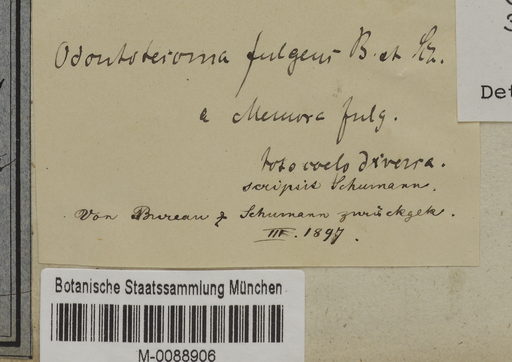 Odontotecoma fulgens B. et Sch.
a Memora fulg.
toto coelo diversa.
scripsit Schumann.
Von Bureau & Schumann zurückgek.
III. 1897.
Botanische Staatssammlung München
M-0088906
3
Det